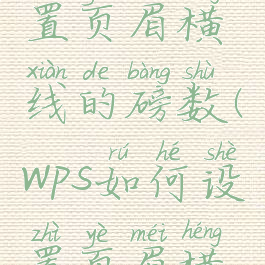 置页眉横
xiàn de bàng shù
线的磅数(
rú hé shè
wps如何设
zhì yè méi héng
置页眉横